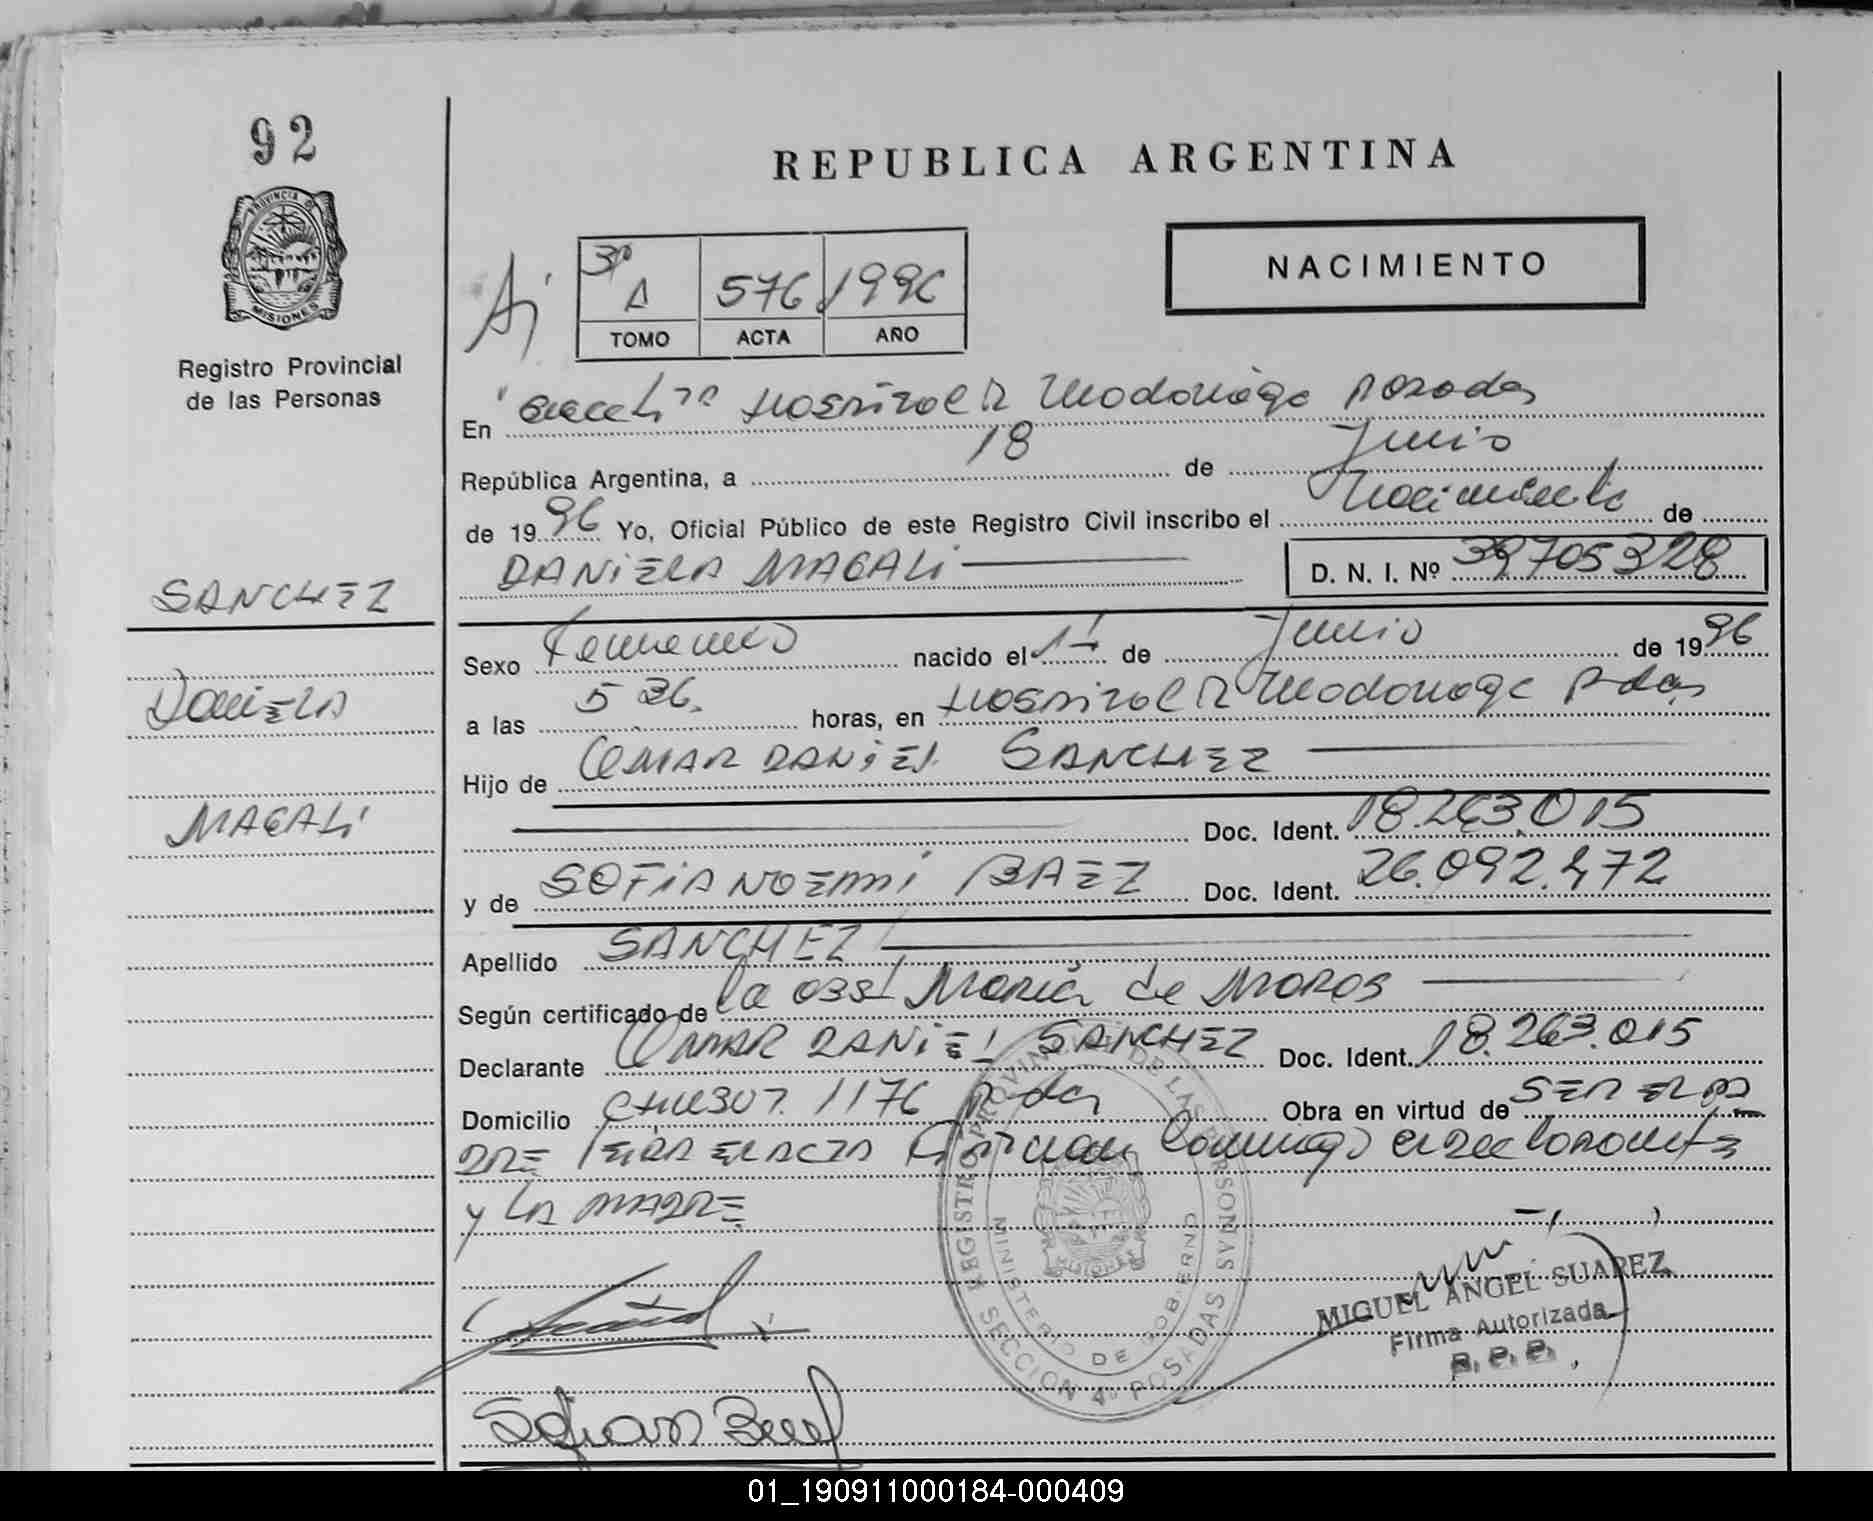 92
PROVINCIA DE
MISIONES
Registro Provincial
de las Personas
REPUBLICA ARGENTINA
NACIMIENTO
3º A 576 1996
TOMO ACTA AÑO
En Hospital R Madariaga Posadas
República Argentina, a 18 de Junio
de 1996 Yo, Oficial Público de este Registro Civil inscribo el Nacimiento de
DANIELA MAGALI D. N. I. Nº 39705328
SANCHEZ
DANIELA
MAGALI
Sexo Femenino nacido el 1º de Junio de 1996
a las 5 36. horas, en Hospital R Madariaga Pdas
Hijo de OMAR DANIEL SANCHEZ
Doc. Ident. 18.263.015
y de SOFIA NOEMI BAEZ Doc. Ident. 26.092.472
Apellido SANCHEZ
Según certificado de la obst María de
Declarante OMAR DANIEL SANCHEZ Doc. Ident. 18.263.015
Domicilio 1176 Pdas Obra en virtud de SER EL PA
DRE Firman el declarante
y LA MADRE
REGISTRO PROVINCIAL DE LAS PERSONAS
MINISTERIO DE GOBIERNO
SECCION 4º POSADAS
MIGUEL ANGEL SUAREZ
Firma Autorizada
R. P. P.
01_190911000184-000409